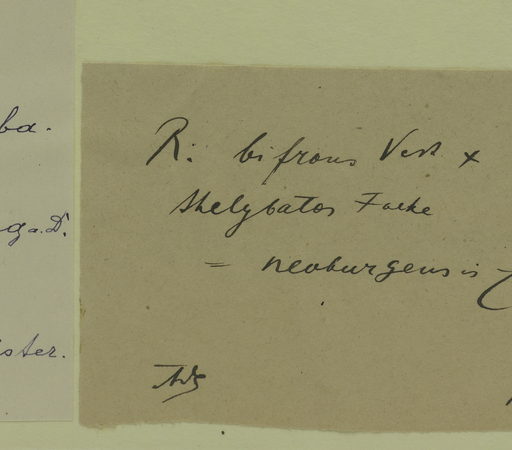 ba.
ga. D.
ster.
R. bifrons Vest x
thelybatos Focke
= neoburgensis